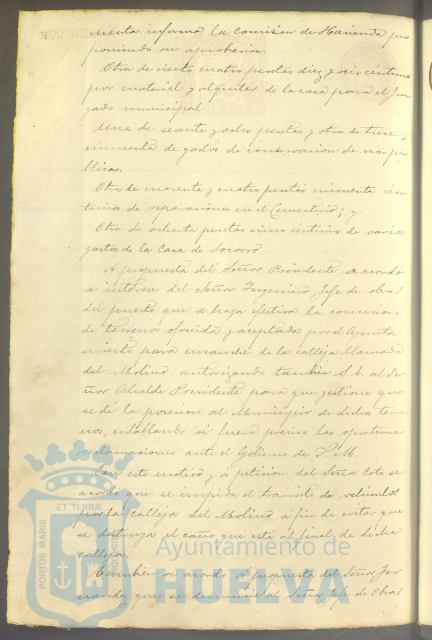 menta informa la Comision de Hacienda pro
poniendo su aprobacion.
Otra de ciento cuatro pesetas diez y seis céntimos
por material y alquiler de la casa para el Juz
gado municipal.
Una de sesenta y ocho pesetas y otra de trece
cincuenta de gastos de conservacion de vias pú
blicas.
Otra de cuarenta y cuatro pesetas cincuenta cén
timos de reparaciones en el Cementerio; y
Otra de ochenta pesetas cinco céntimos de varios
gastos de la Casa de Socorro
A propuesta del Señor Presidente se acordó
se interese del Señor Ingeniero Jefe de obras
del puerto que se haga efectiva la concesion
de terreno ofrecida y aceptada por el Ayunta
miento para ensanche de la calleja llamada
del Molino autorizando tambien S.E. al Se
ñor Alcalde Presidente para que gestione que
se dé la posesion al Municipio de dichos terre
nos, entablando si fuera preciso las oportunas
reclamaciones ante el Gobierno de S. M.
Con este motivo y a peticion del Señor Coto se
acordó que se impida el transito de vehiculos
por la calleja del Molino a fin de evitar que
se destruya el caño que está al final de dicha
calleja.
Tambien se acordó a propuesta del Señor Fer
nandez que se denuncie al Señor Jefe de Obras
PORTUS MARIS
ET TERRÆ
Ayuntamiento de
HUELVA